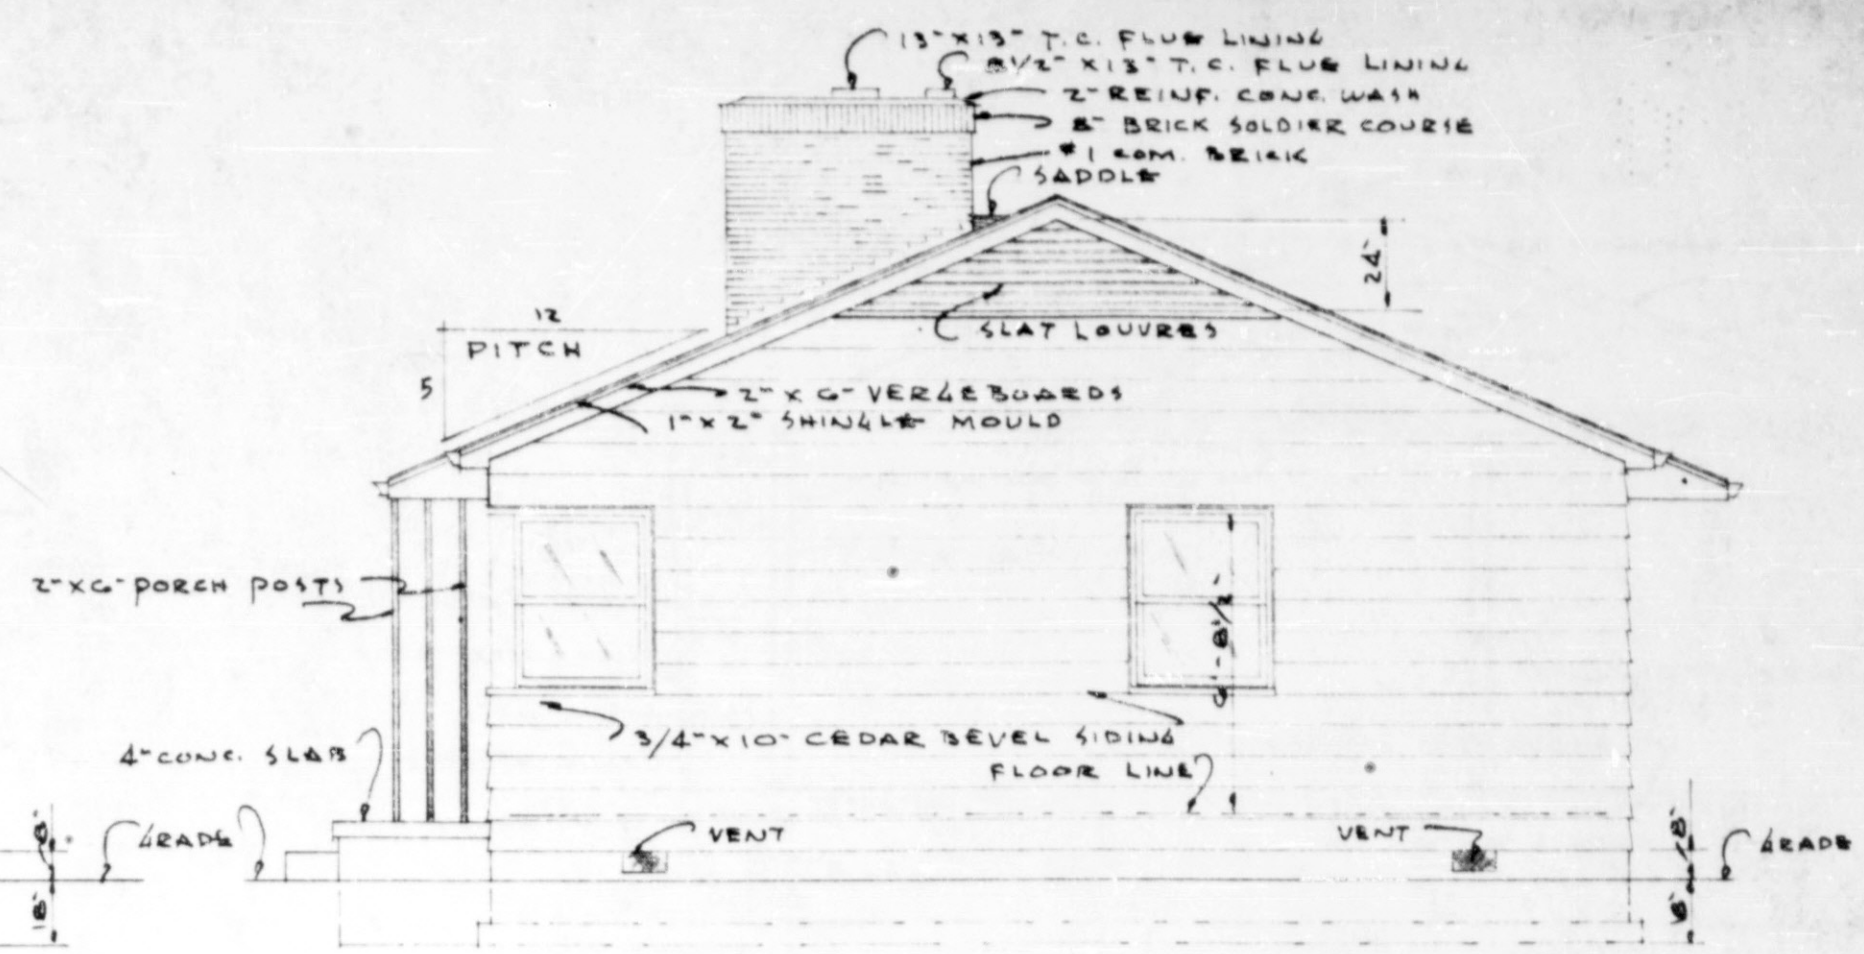 13" X 13" T.C. FLUE LINING
8 1/2" X 13" T.C. FLUE LINING
2" REINF. CONC. WASH
8" BRICK SOLDIER COURSE
#1 COM. BRICK
SADDLE
24"
SLAT LOUVRES
12
PITCH
5
2" X 6" VERGEBOARDS
1" X 2" SHINGLE MOULD
2" X 6" PORCH POSTS
6'-8 1/2"
3/4" X 10" CEDAR BEVEL SIDING
4" CONC. SLAB
FLOOR LINE
GRADE
VENT
VENT
GRADE
8"
18"
18"